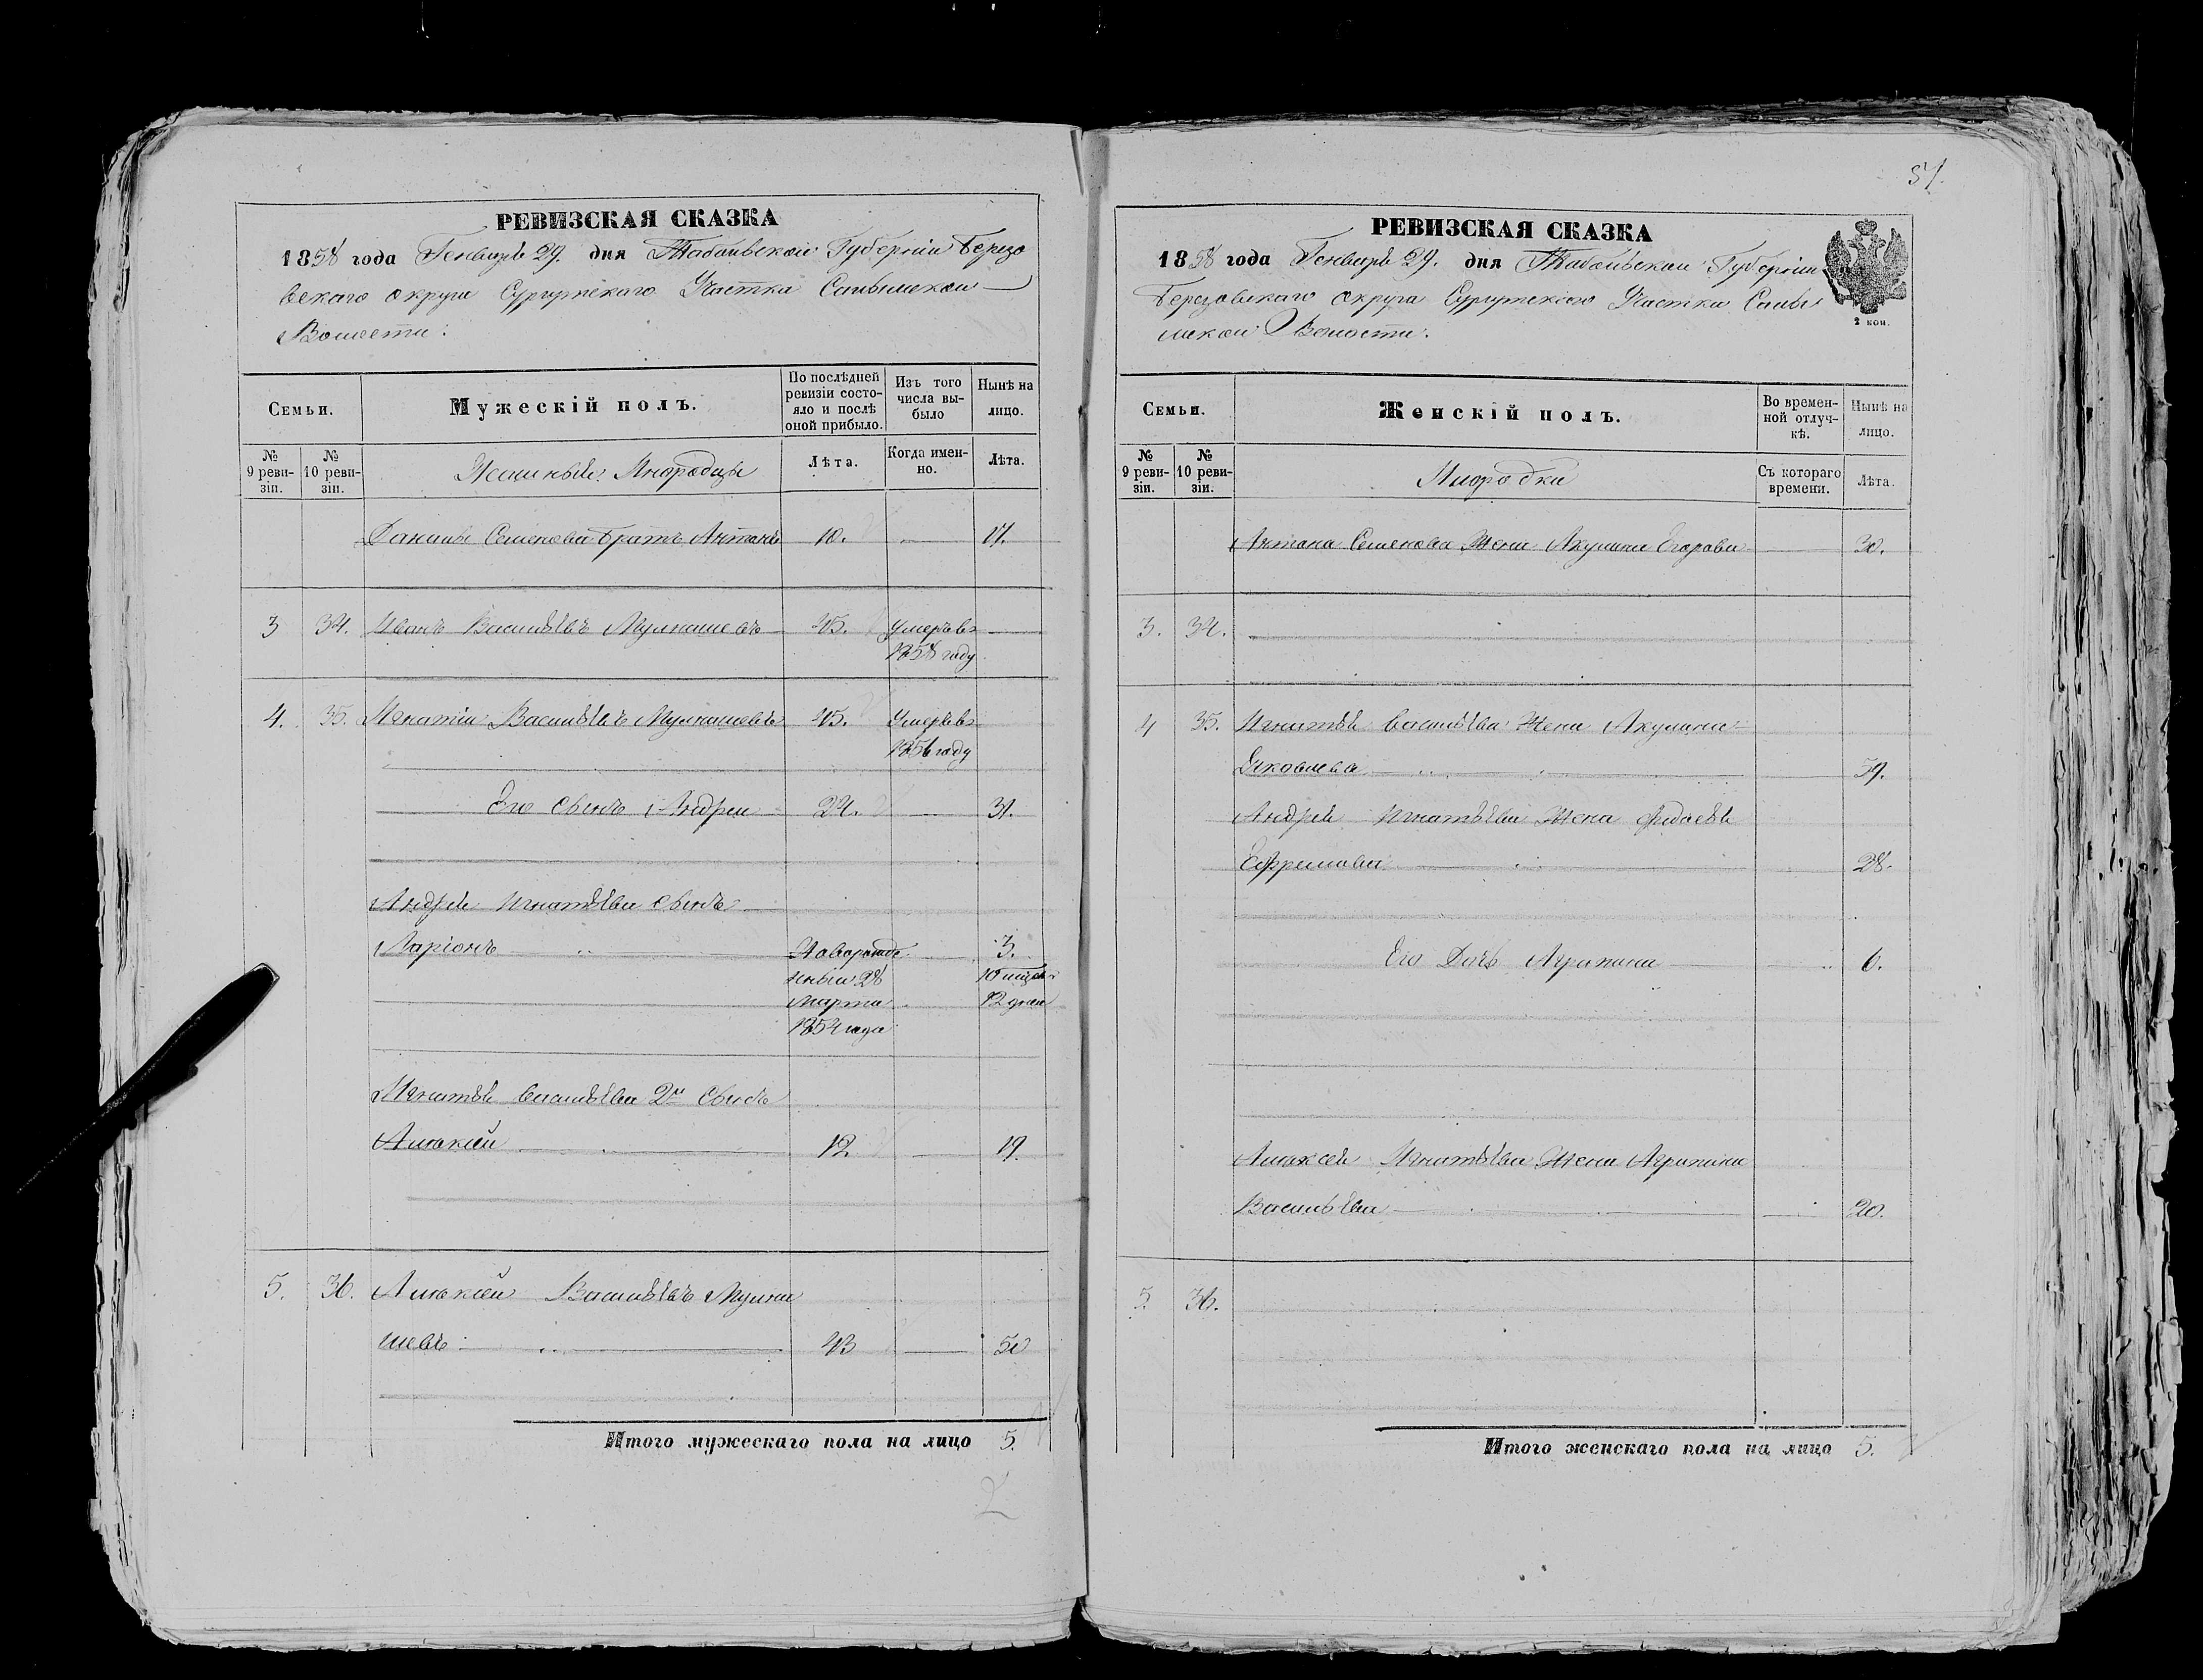 РЕВИЗСКАЯ СКАЗКА
1858 года Генваря 29. дня Тобольской Губерніи Березо
вскаго округа Сургутскаго Участка Салымской
Волости.
Семьи.
Мужескій полъ.
По послѣдней
ревизіи состо-
яло и послѣ
оной прибыло.
Изъ того
числа вы-
было
Нынѣ на
лицо.
№
9 реви-
зіи.
№
10 реви-
зіи.
Ясашныи Инородцы
Лѣта.
Когда имен-
но.
Лѣта.
Данилы Семенова братъ Антонъ 10. 17.
3 34. Иванъ Васильевъ Мулташевъ 45. Умеръ въ
1858 году
4. 35. Игнатіи Васильевъ Мулташевъ 45. Умеръ въ
1856 году
Его сынъ Андреи 24. 31.
Андрея Игнатьева сынъ
Ларіонъ Новорожде 3.
нныи 28 10 мцов
Марта 12 дней
1854 года
Игнатья Васильева 2й сынъ
Алексѣй 12. 19.
5. 36. Алексѣй Васильевъ Мулта
шевъ 43 50
Итого мужескаго пола на лицо 5.
2
51.
РЕВИЗСКАЯ СКАЗКА
1858 года Генваря 29. дня Тобольской Губерніи
Березовскаго округа Сургутскаго Участка Салы
мской Волости.
2 коп.
Семьи.
Женскій полъ.
Во времен-
ной отлуч-
кѣ.
Нынѣ на
лицо.
№
9 реви-
зіи.
№
10 реви-
зіи.
Инородки
Съ котораго
времени.
Лѣта.
Антона Семенова жена Акулина Егорова 30.
3. 34.
4 35. Игнатья Васильева жена Акулина
Яковлева 59.
Андрея Игнатьева жена Федосья
Ефремова 28.
Его дочь Агрипина 6.
Алексея Игнатьева жена Агрипина
Васильева 20.
5. 36.
Итого женскаго пола на лицо 5.